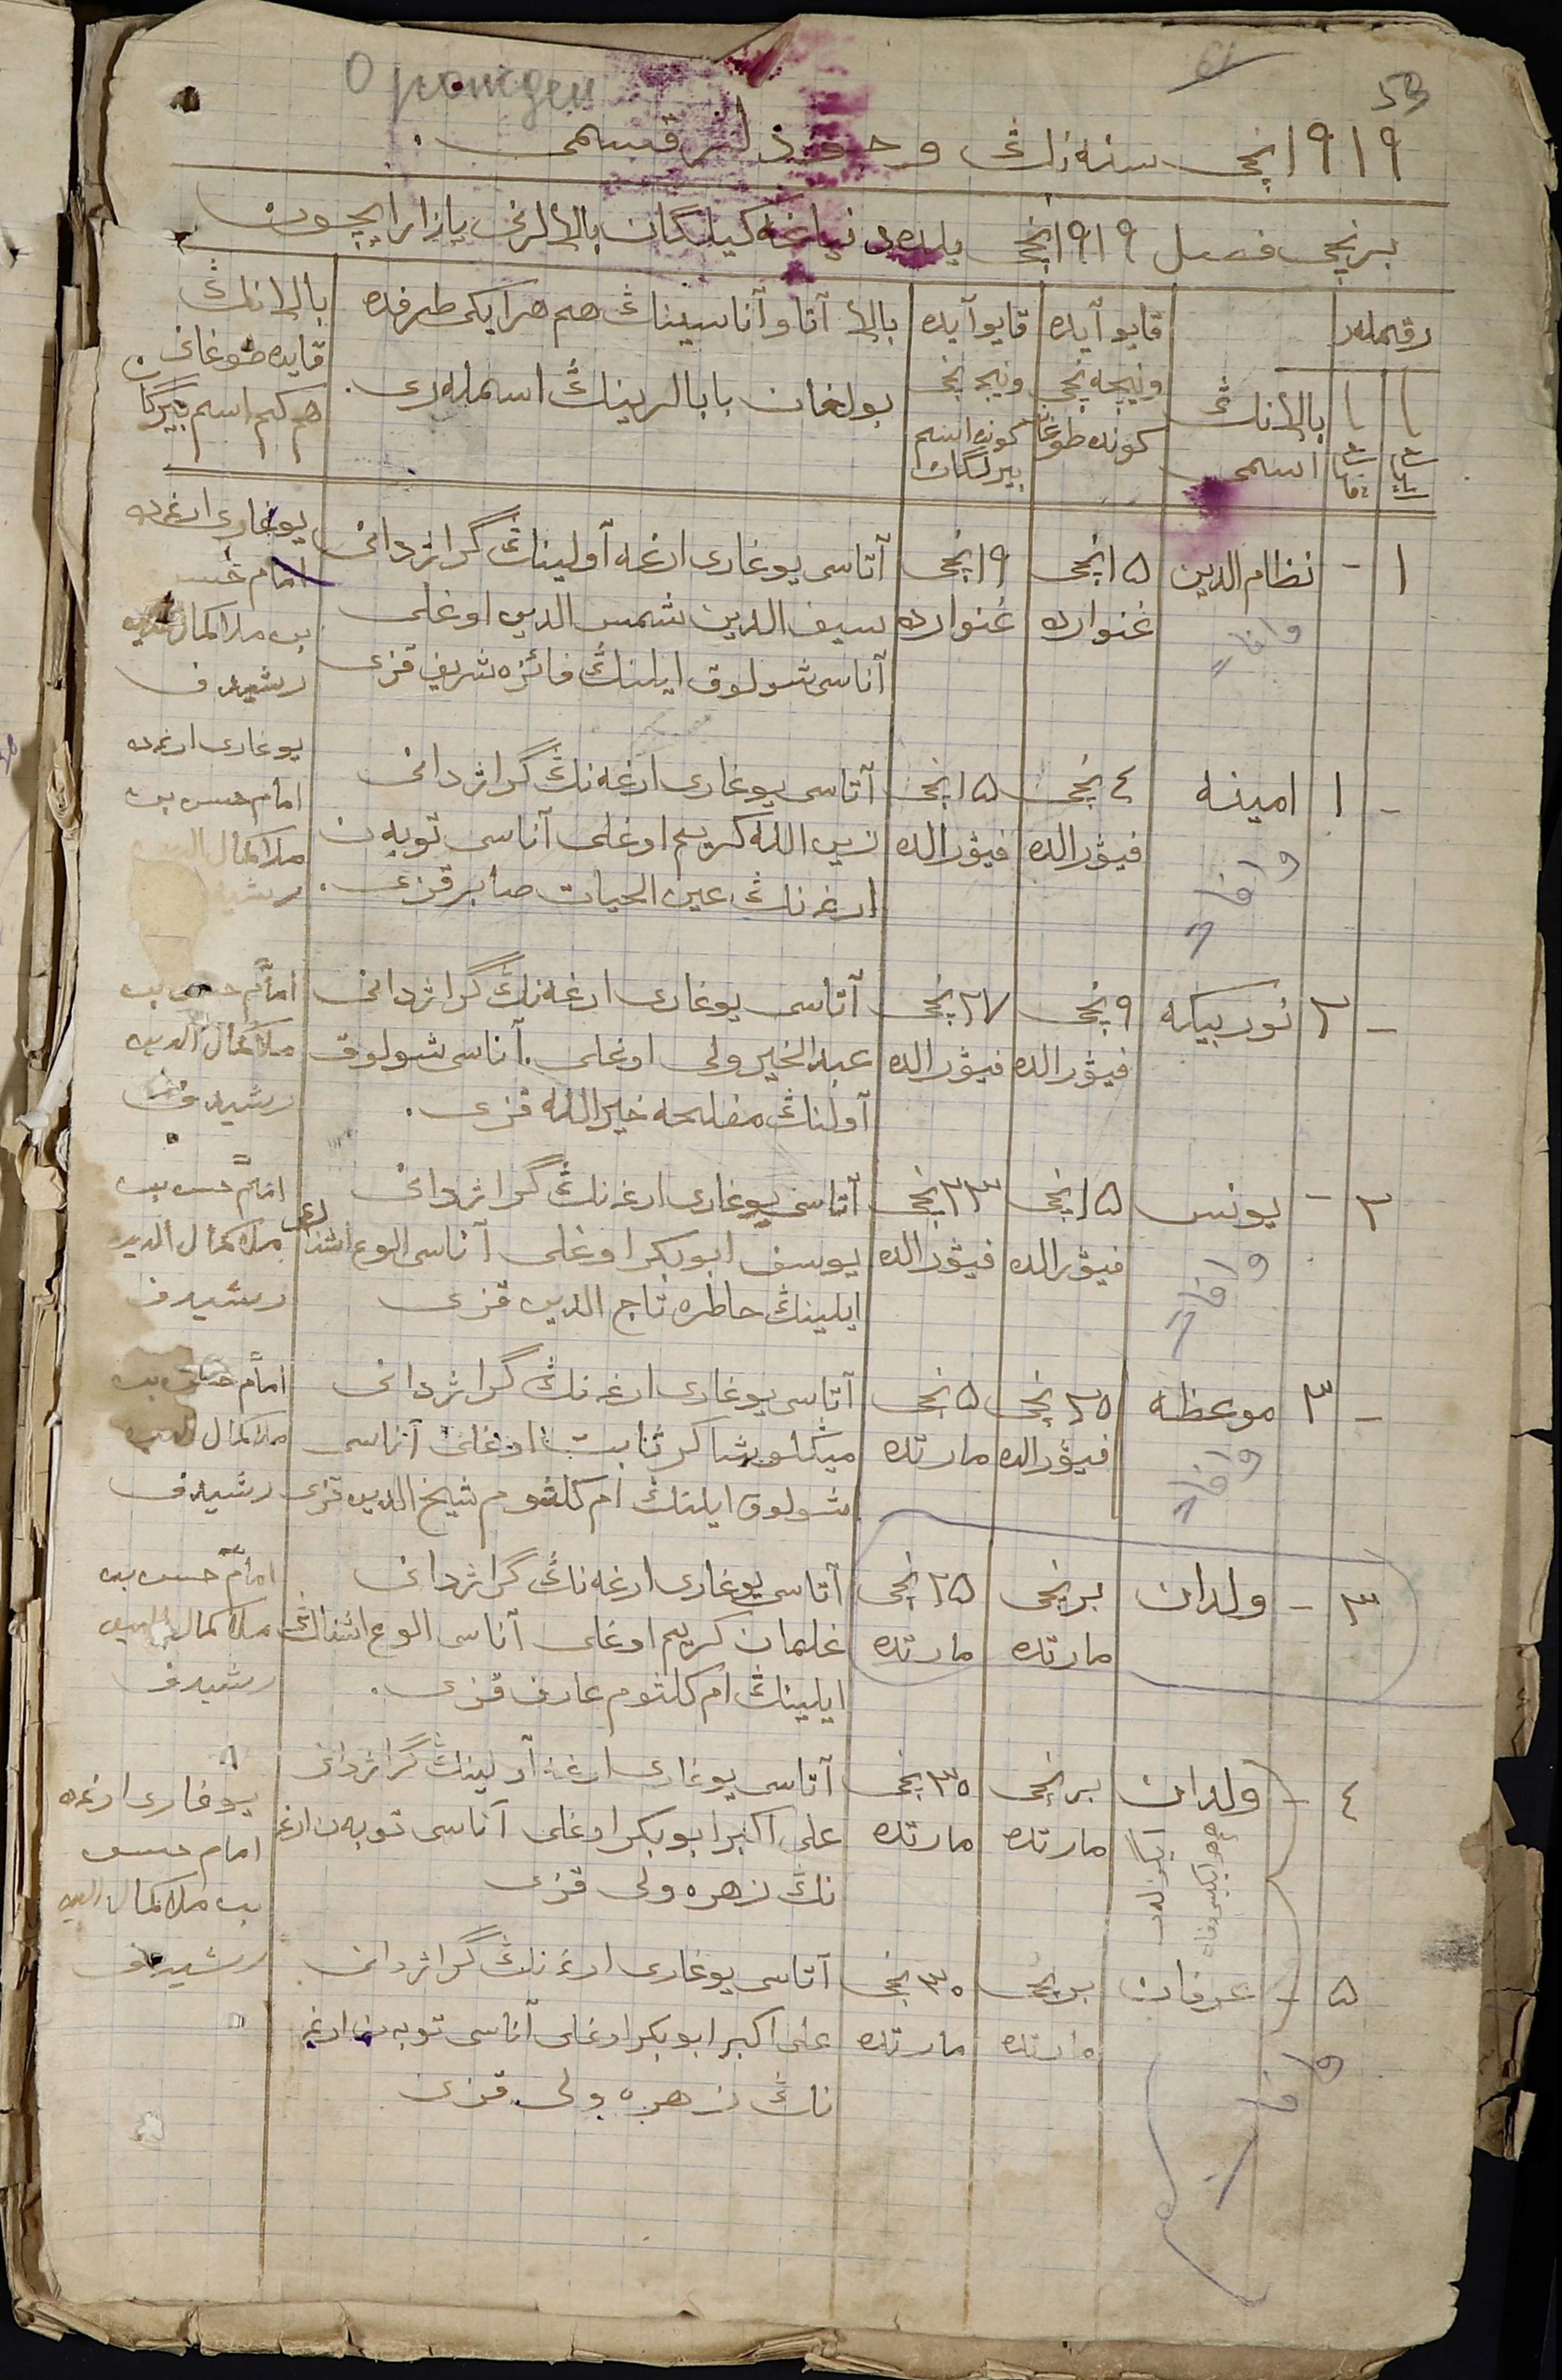 О рождении
61
53
١٩١٩نچی سنه‌نڭ
قسمی
برنچی فصل ١٩١٩نچی یلده دنیاغه کیلگان بالالرنی یازار ایچون
رقمله‌ر
بالانڭ
اسمی
قایو آیده
ونیچه‌نچی
کونده طوغان
قایو آیده
ونیچه‌نچی
کونده اسم
بیرلگان
بالا آتا وآناسیناڭ هم هر ایکی طرفده
بولغان بابالرینڭ اسمله‌ری.
بالانڭ
قایده طوغان
هم کم اسم بیرگان
١ - نظام الدین
١٥نچی
غنوارده
١٩نچی
غنوارده
آتاسی یوغاری ارغه آولیناڭ گراژدانی
سیف الدین شمس الدین اوغلی
آناسی شولوق ایلنڭ فائزه شریف قزی
یوغاری ارغه‌ده
امام حسن
بن ملا کمال الدین
رشیدف
وفات
- ١ امینه
٤نچی
فیۋرالده
١٥نچی
فیۋرالده
آتاسی یوغاری ارغه‌نڭ گراژدانی
زین الله کریم اوغلی آناسی توبه‌ن
ارغه‌نڭ عین الحیات صابر قزی.
یوغاری ارغه‌ده
امام حسن بن
ملا کمال الدین
وفات
- ٢ نوربیکه
٩نچی
فیۋرالده
٢٧نچی
فیۋرالده
آتاسی یوغاری ارغه‌نڭ گراژدانی
عبد الخیر ولی اوغلی. آناسی شولوق
آولنڭ مفلحه خیرالله قزی.
امام حسن بن
ملا کمال الدین
رشیدف
٢ - یونس
١٥نچی
فیۋرالده
٢٣نچی
فیۋرالده
آتاسی یوغاری ارغه‌نڭ گراژدانی
یوسف ابوبکر اوغلی آناسی الوع
ایلینڭ حاطره تاج الدین قزی
امام حسن بن
ملا کمال الدین
رشیدف
وفات
- ٣ موعظه
٢٥نچی
فیۋرالده
٥نچی
مارتده
آتاسی یوغاری ارغه‌نڭ گراژدانی
شاکر ثابت اوغلی آناسی
شولوق ایلنڭ ام کلثوم شیخ الدین قزی
امام حسن بن
ملا کمال الدین
رشیدف
وفات
٣ - ولدان
برنچی
مارتده
٢٥نچی
مارتده
آتاسی یوغاری ارغه‌نڭ گراژدانی
غلمان کریم اوغلی آناسی الوع
ایلیناڭ ام کلثوم عارف قزی.
امام حسن بن
ملا کمال الدین
رشیدف
٤ - ولدان
برنچی
مارتده
٣٠نچی
مارتده
آتاسی یوغاری ارغه آولینڭ گراژدانی
علی اکبر ابوبکر اوغلی آناسی توبه‌ن ارغه
نڭ زهره ولی قزی
یوغاری ارغه‌ده
امام حسن
بن ملا کمال الدین
رشیدف
٥ - عرفان
برنچی
مارتده
٣٠نچی
مارتده
آتاسی یوغاری ارغه‌نڭ گراژدانی
علی اکبر ابوبکر اوغلی آناسی توبه‌ن ارغه
ناڭ زهره ولی قزی
وفات